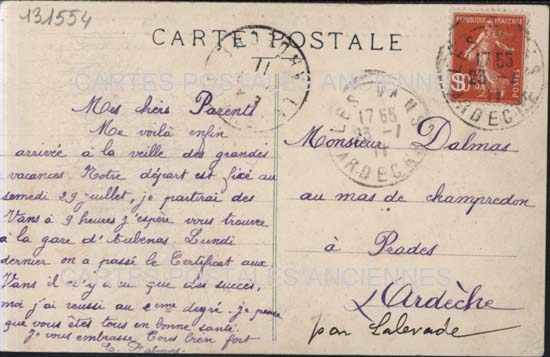 131554
CARTE POSTALE
REPUBLIQUE FRANÇAISE
Mes chers Parents
Me voilà enfin
arrivée à la veille des grandes
vacances. Notre départ est fixé au
samedi 29 juillet, je partirai des
Vans à 9 heures j'espère vous trouver
à la gare d'Aubenas Lundi
dernier on a passé le Certificat aux
Vans il n'y a eu que des succès,
moi j'ai réussi au 2eme degré. je pense
que vous êtes tous en bonne santé.
Je vous embrasse tous bien fort
E. Dalmas.
LES VANS
17 55
23 -7
11
ARDECHE
Monsieur Dalmas
au mas de champredon
à Prades
Ardèche
par Lalevade
CARTES POSTALES ANCIENNES
CARTES POSTALES ANCIENNES